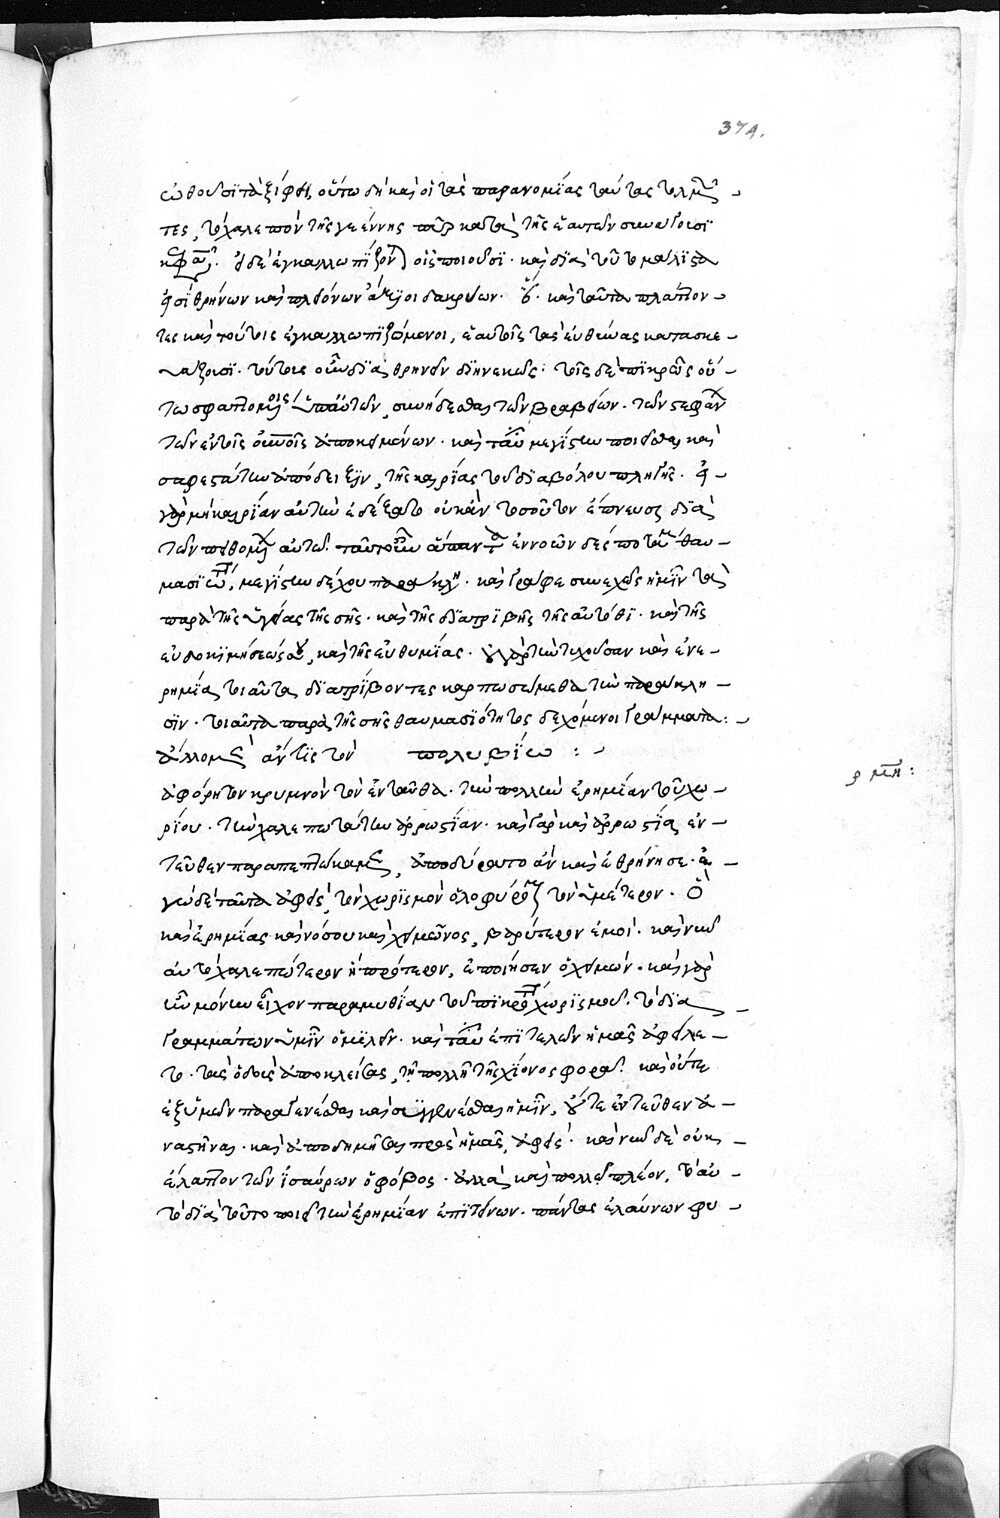 374.
ὠθοῦσι τὰ ξίφη, οὕτω δὴ καὶ οἱ τὰς παρανομίας ταύτας τολμῶν
τες, τὸ χαλεπὸν τῆς γεέννης πῦρ κατὰ τῆς ἑαυτῶν συνάγουσι
κεφαλῆς. εἰ δὲ ἐγκαλλωπίζονται οἷς ποιοῦσι. καὶ διὰ τοῦτο μάλιστα
εἰσὶ θρήνων καὶ πλειόνων ἄξιοι δακρύων. καὶ ταῦτα πλάττον
τες καὶ τούτοις ἐγκαλλωπιζόμενοι, ἑαυτοῖς τὰς εὐθύνας κατασκε
υάζουσι. τούτους οὖν διὰ θρηνεῖν διηνεκῶς: τοῖς δὲ πικρῶς οὕ
τω σφαττομένοις ὑπ' αὐτῶν, συνήδεσθαι τῶν βραβείων. τῶν στεφάνων
τῶν ἐν τοῖς οὐρανοῖς ἀποκειμένων. καὶ ταύτην μεγίστην ποιεῖσθαι καὶ
σαφεστάτην ἀπόδειξιν, τῆς καιρίας τοῦ διαβόλου πληγῆς. εἰ
γὰρ μὴ καιρίαν αὐτὴν ἐδέξατο οὐκ ἂν τοσοῦτον ἔπνευσε διὰ
τῶν πειθομένων αὐτῷ. ταῦτ' οὖν ἅπαντα ἐννοῶν δέσποτά μου θαυ
μασιώτατε, μεγίστην δέχου παράκλησιν. καὶ γράφε συνεχῶς ἡμῖν τὰ
περὶ τῆς ὑγείας τῆς σῆς. καὶ τῆς διατριβῆς τῆς αὐτόθι. καὶ τῆς
εὐδοκιμήσεώς σου, καὶ τῆς εὐθυμίας. εἰ γὰρ τὴν τυχοῦσαν καὶ ἐν ἐ
ρημίᾳ τοιαύτῃ διατρίβοντες καρπωσώμεθα τὴν παράκλη
σιν. τοιαῦτα παρὰ τῆς σῆς θαυμασιότητος δεχόμενοι γράμματα:
ἄλλο μὲν αὖ τις τὸν πολυβίῳ :
ρμη:
ἀφόρητον κρυμνὸν τὸν ἐνταῦθα. τὴν πολλὴν ἐρημίαν τοῦ χω
ρίου. τὴν χαλεπωτάτην ἀρρωστίαν. καὶ γὰρ καὶ ἀρρωστίᾳ ἐν
τεῦθεν παραπεπτώκαμεν, ἀπωδύρατο ἂν καὶ ἐθρήνησε. ἐ
γὼ δὲ ταῦτα ἀφείς, τὸν χωρισμὸν ὀλοφύρομαι τὸν ὑμέτερον. ὃ
καὶ ἐρημίας καὶ νόσου καὶ χειμῶνος, βαρύτερον ἐμοί. καὶ νῦν
αὐτὸ χαλεπώτερον ἢ πρότερον, ἐποίησεν ὁ χειμών. καὶ γὰρ
ἣν μόνην εἶχον παραμυθίαν τοῦ πικροῦ χωρισμοῦ. τὸ διὰ
γραμμάτων ὑμῖν ὁμιλεῖν. καὶ ταύτην ἐπιτελῶν ἡμᾶς ἀφείλε
το. τὰς ὁδοὺς ἀποκλείσας, τῇ πολλῇ τῆς χιόνος φορᾷ. καὶ οὔτε
ἐξ ὑμῶν παραγενέσθαι καὶ συγγενέσθαι ἡμῖν, οὔτε ἐντεῦθεν ἀ
ναστῆναι. καὶ ἀποδημῆσαι πρὸς ἡμᾶς, ἀφείς. καὶ νῦν δὲ οὐκ
ἔλαττον τῶν ἰσαύρων ὁ φόβος. ἀλλὰ καὶ πολλῷ πλέον, τὸ αὐ
τὸ διὰ τοῦτο ποιεῖ τὴν ἐρημίαν ἐπιτείνων. πάντας ἐλαύνων φυ